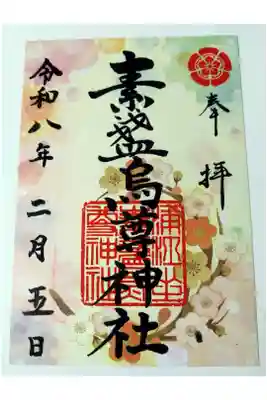 奉拝
素盞烏尊神社
令和八年二月五日